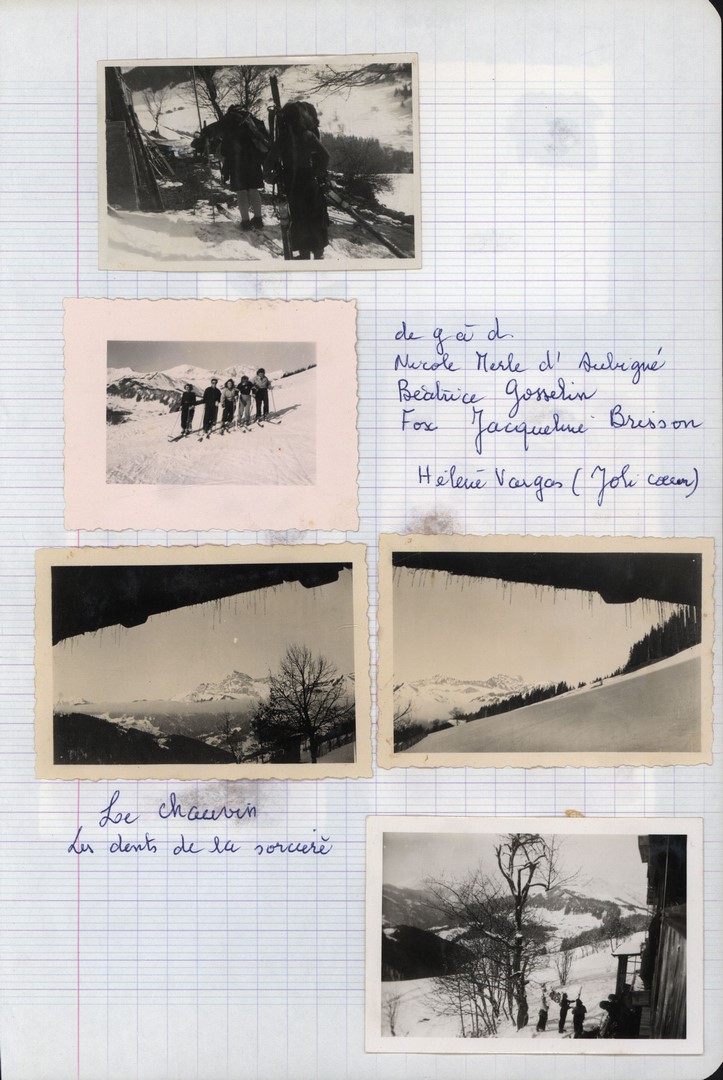 de g à d.
Nicole Merle d' Aubigné
Béatrice Gosselin
Fox Jacqueline Brisson
Hélène Vargas (Joli cœur)
Le chauvin
Les dents de la sorcière